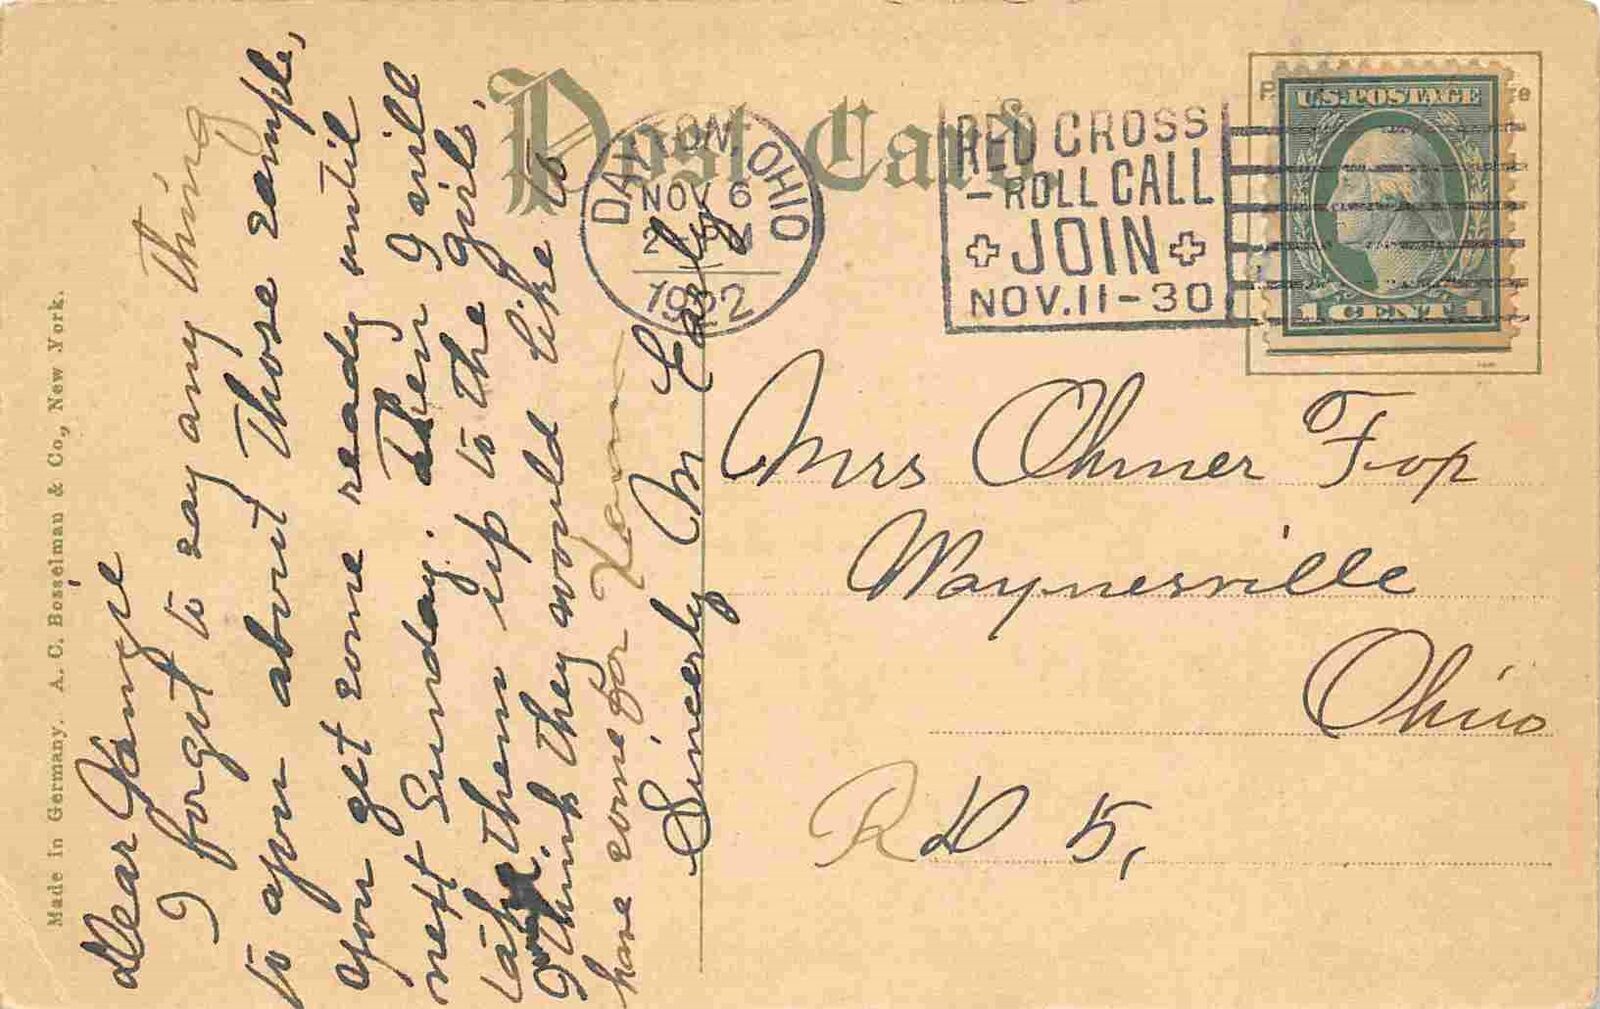 Post Card.
DAYTON, OHIO
NOV 6
1922
RED CROSS
- ROLL CALL
JOIN
NOV. 11-30
U.S. POSTAGE
1 CENT 1
Made in Germany. A. C. Bosselman & Co., New York.
Dear
I forget to say any thing
to you about those sample,
you get some ready until
next Sunday. Then I will
take them up to the girls.
I think they would like to
have some for Xmas
Sincerly M Early
Mrs Ohmer
Waynesville
Ohio
R D 5,